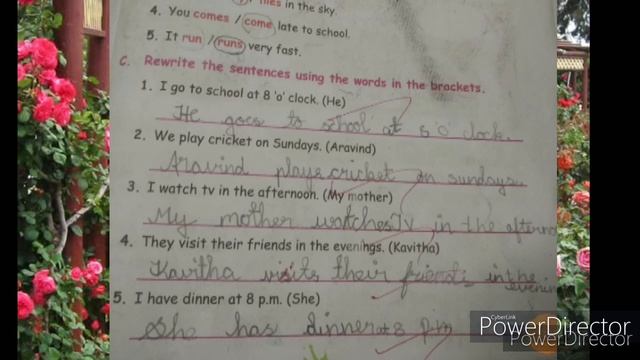 flies in the sky.
4. You comes / come late to school.
5. It run / runs very fast.
C. Rewrite the sentences using the words in the brackets.
1. I go to school at 8 'o' clock. (He)
He goes to school at 8 'o' clock.
2. We play cricket on Sundays. (Aravind)
Aravind plays cricket on sundays.
3. I watch tv in the afternoon. (My mother)
My mother watches TV in the afternoo
4. They visit their friends in the evenings. (Kavitha)
Kavitha visits their friends in the evenin
5. I have dinner at 8 p.m. (She)
She has dinner at 8 p.m
CyberLink
PowerDirector
PowerDirector